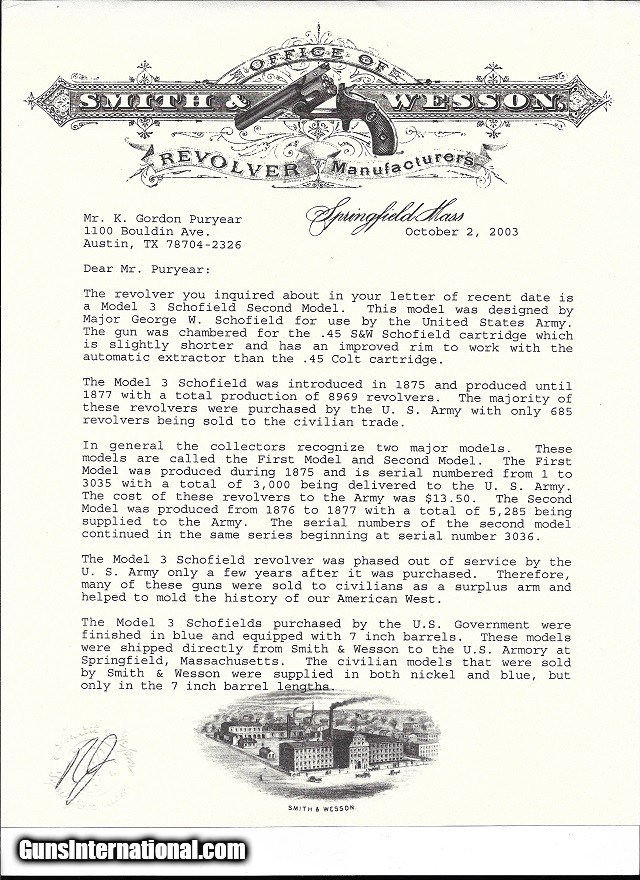 OFFICE OF
SMITH & WESSON.
REVOLVER Manufacturers
Springfield Mass
Mr. K. Gordon Puryear
1100 Bouldin Ave.
October 2, 2003
Austin, TX 78704-2326
Dear Mr. Puryear:
The revolver you inquired about in your letter of recent date is
a Model 3 Schofield Second Model. This model was designed by
Major George W. Schofield for use by the United States Army.
The gun was chambered for the .45 S&W Schofield cartridge which
is slightly shorter and has an improved rim to work with the
automatic extractor than the .45 Colt cartridge.
The Model 3 Schofield was introduced in 1875 and produced until
1877 with a total production of 8969 revolvers. The majority of
these revolvers were purchased by the U. S. Army with only 685
revolvers being sold to the civilian trade.
In general the collectors recognize two major models. These
models are called the First Model and Second Model. The First
Model was produced during 1875 and is serial numbered from 1 to
3035 with a total of 3,000 being delivered to the U. S. Army.
The cost of these revolvers to the Army was $13.50. The Second
Model was produced from 1876 to 1877 with a total of 5,285 being
supplied to the Army. The serial numbers of the second model
continued in the same series beginning at serial number 3036.
The Model 3 Schofield revolver was phased out of service by the
U. S. Army only a few years after it was purchased. Therefore,
many of these guns were sold to civilians as a surplus arm and
helped to mold the history of our American West.
The Model 3 Schofields purchased by the U.S. Government were
finished in blue and equipped with 7 inch barrels. These models
were shipped directly from Smith & Wesson to the U.S. Armory at
Springfield, Massachusetts. The civilian models that were sold
by Smith & Wesson were supplied in both nickel and blue, but
only in the 7 inch barrel lengths.
SMITH & WESSON.
GunsInternational.com